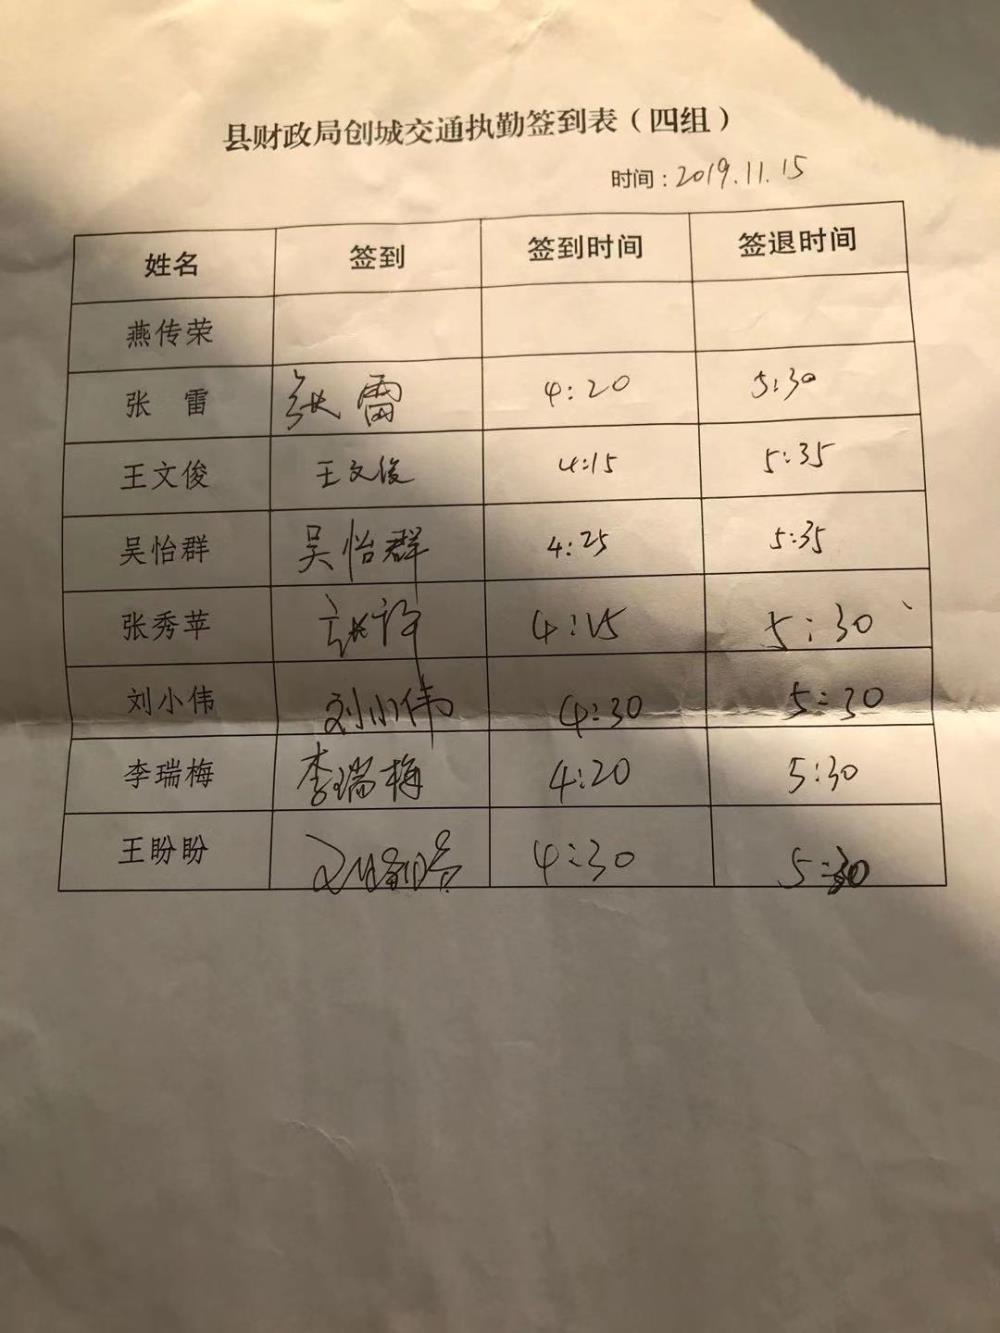 县财政局创城交通执勤签到表（四组）
时间：2019.11.15
姓名 签到 签到时间 签退时间
燕传荣
张 雷 张雷 4:20 5:30
王文俊 王文俊 4:15 5:35
吴怡群 吴怡群 4:25 5:35
张秀苹 4:15 5:30
刘小伟 刘小伟 4:30 5:30
李瑞梅 李瑞梅 4:20 5:30
王盼盼 4:30 5:30